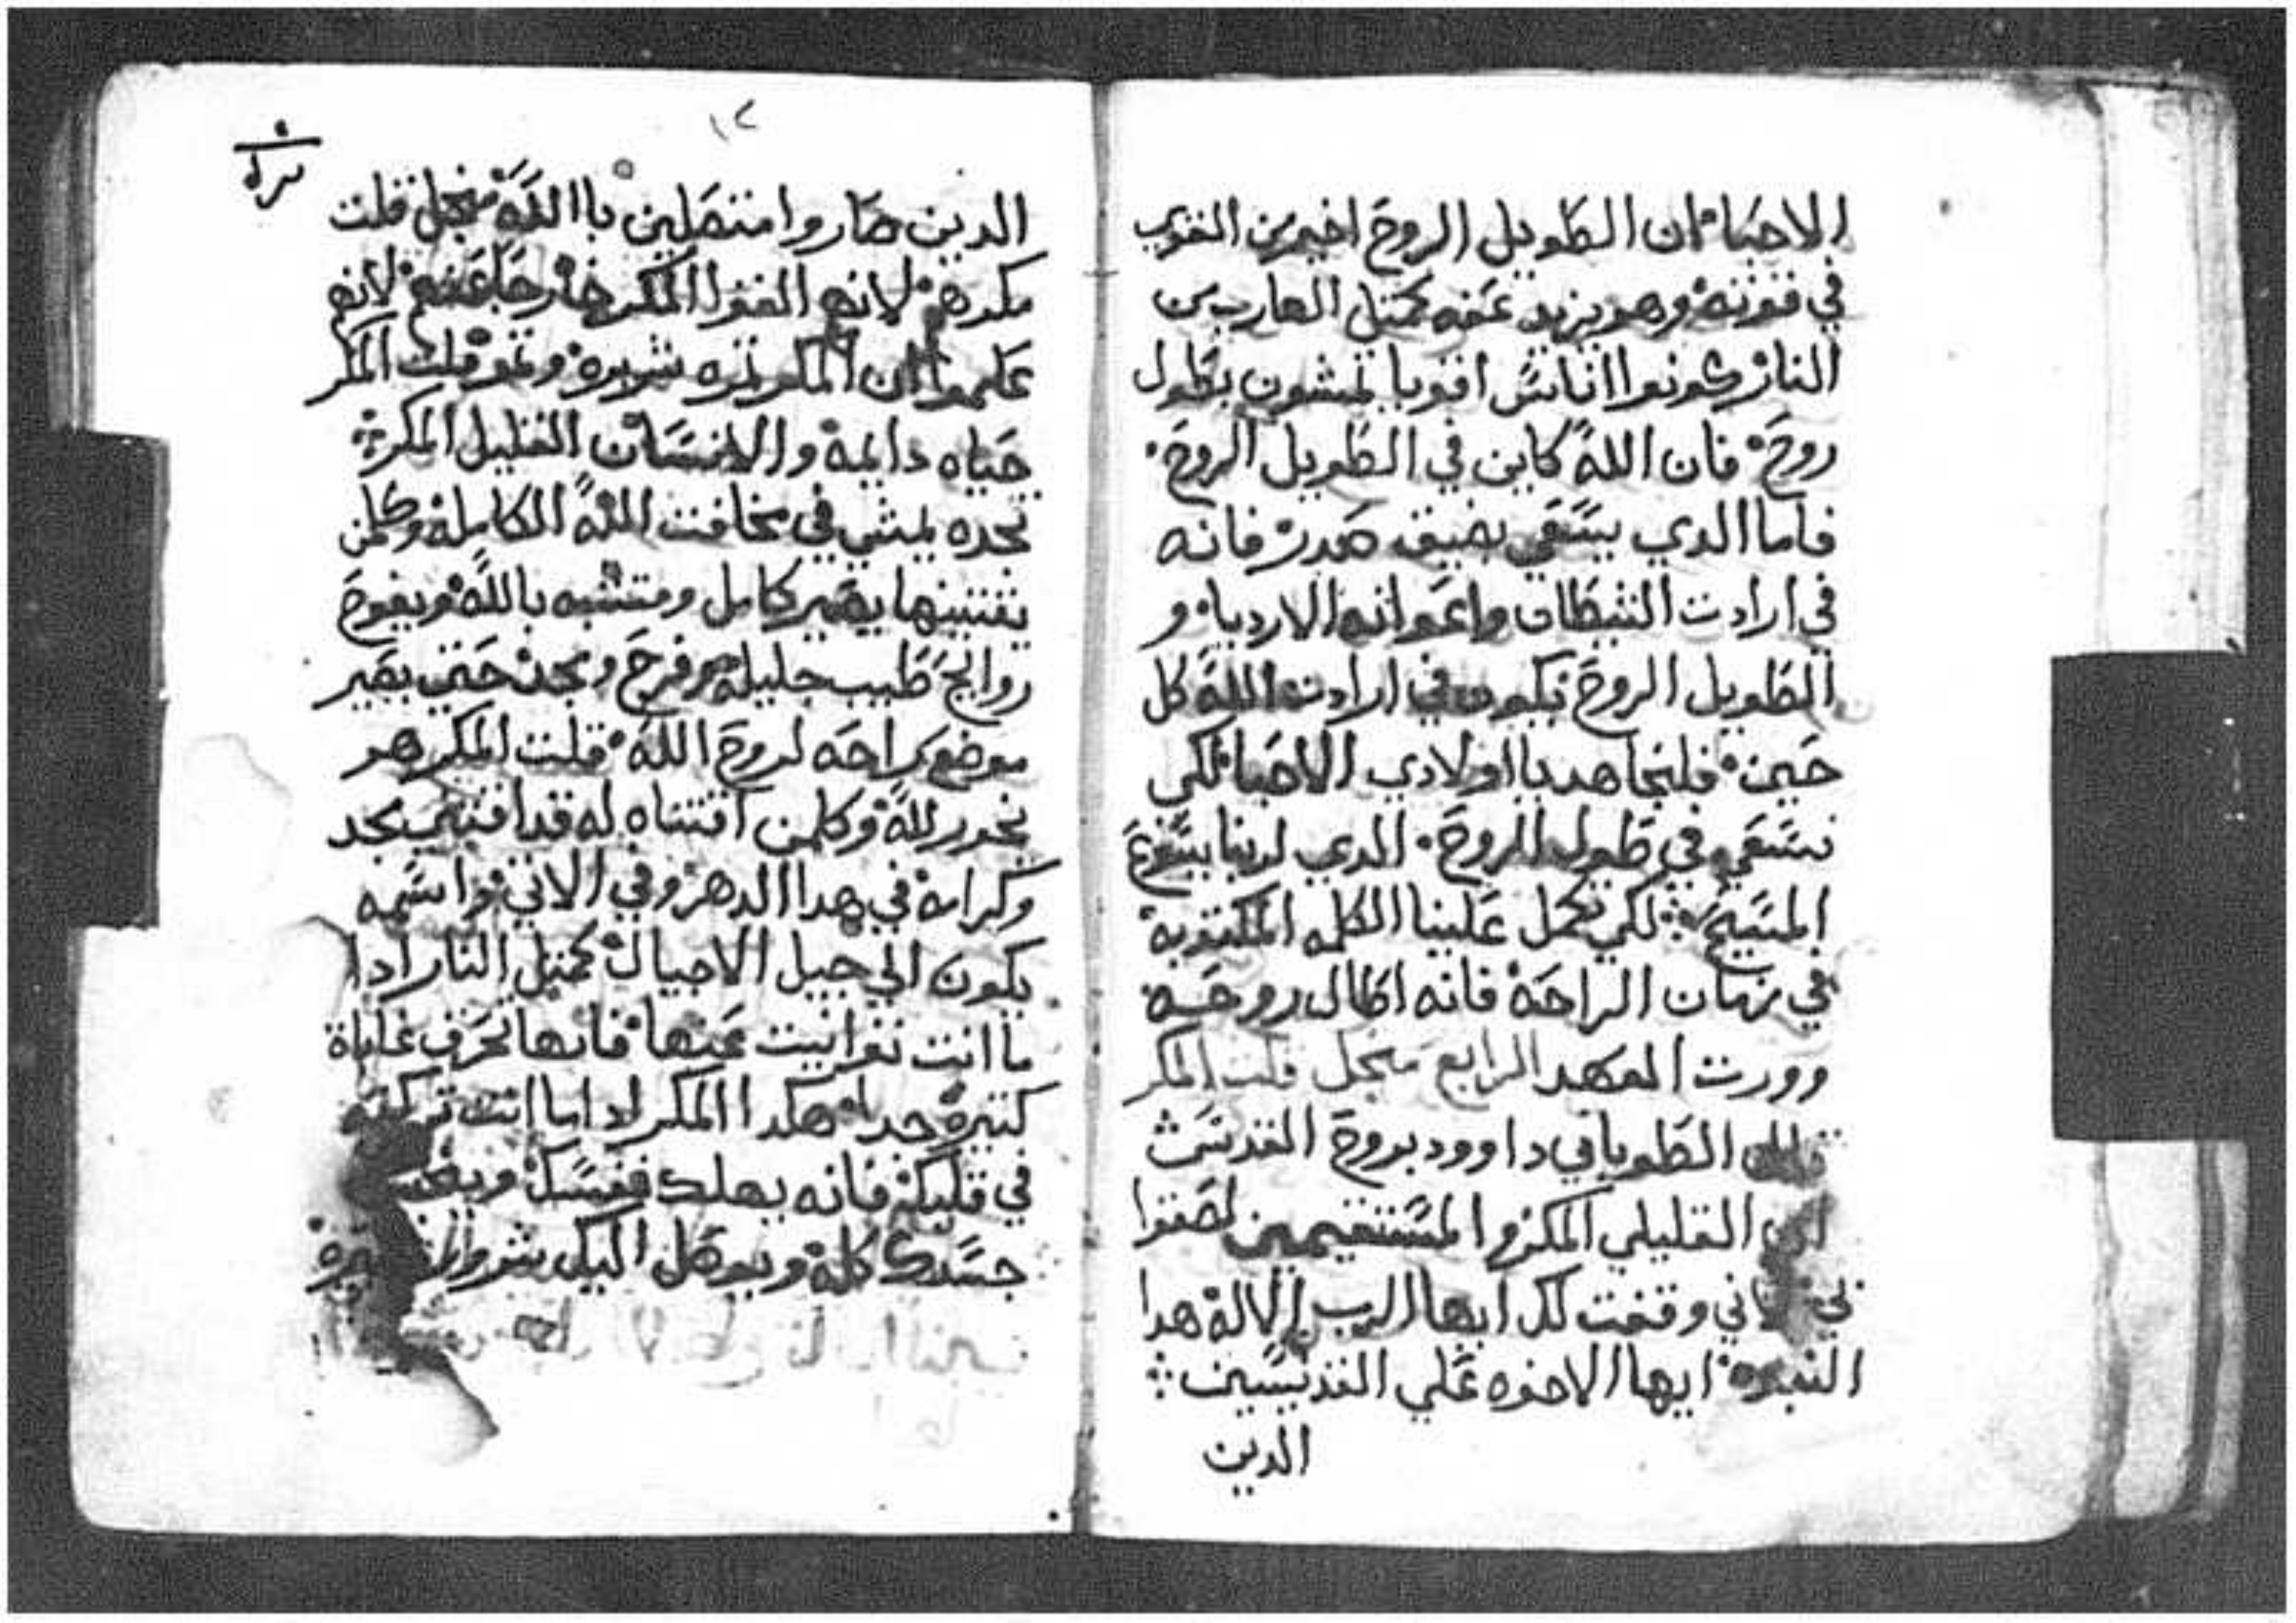 الاحبا ان الطويل الروح اخير من القوي
في قوته وهو يزيد عنه كمتل الهارب من
النار كونوا اناسً اقويا تمشون بطول
روح فان الله كاين في الطويل الروح
فاما الدي يسعي بضيق صدر فانه
في ارادت الشيطان واعوانه الارديا و
الطويل الروح يكون في ارادت الله كل
حين فلنجاهد يا اولادي الاحبا لكي
نسعي في طول الروح الدي لربنا يسوع
المسيح لكي يكمل علينا الكلمه المكتوبه
في زمان الراحة فانه اطال روحه
وورت العهد الرابع منجل قلت المكر
الطوباني داوود بروح القدس
القليلي المكر والمستقيمين لصقوا
لاني وقفت لك ايها الرب الاله هدا
ايها الاخوه علي القديسين
الدين
١٢
الدين صاروا متصلين باالله منجل قلت
مكرهم لانهم القوا المكر خارجاً عنهم لانهم
علموا ان المكر تمره شريره وتمرة قلت المكر
حياه دايمة والانسان القليل المكر
تجده يمشي في مخافت الله الكاملة وكلمن
يقتنيها يصير كامل ومتشبه بالله ويفوح
روايح طيب جليلة مفرح ومجد حتي يصير
موضع راحه لروح الله قلت المكر هو
بخور لله وكلمن اقتناه له قد اقتني مجد
وكرامة في هدا الدهر وفي الاتي واسمه
يكون الي جيل الاجيال كمتل النار ادا
ما انت عنها فانها تحرق غاباة
كتيرة جدا هكدا المكر ادا ما انت تركته
في قلبك فانه يهلك نفسك
جسدك كله كل